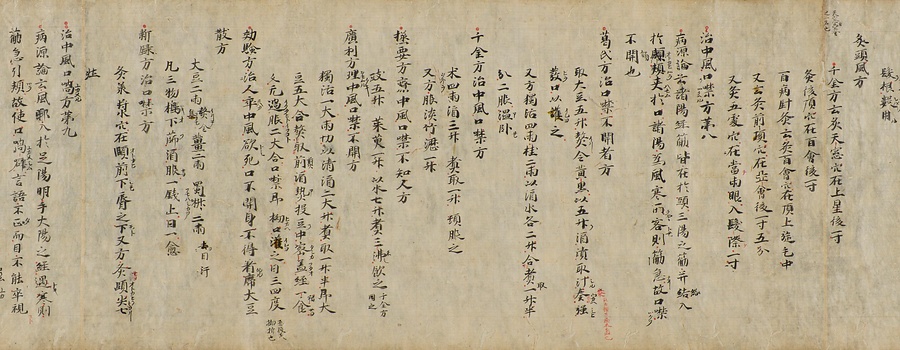 灸頭風方
千金方云灸天窓穴在上星後一寸
灸後頂穴在百會後一寸
百病針灸云灸百會穴在頂上旋毛中
又云灸前頂穴在百會後一寸五分
又灸五處穴在當兩眼入髮際一寸
治中風口噤方第八
病源論云諸陽經筋皆在於頭三陽之筋并絡入
於頷頰夾於口諸陽為風寒所客則筋急故口噤
不開也
葛氏方治口噤不開者方
取大豆五升熬令黃黑以五升酒漬取汁
以灌之
又方獨活四兩桂二兩以酒水各二升合煮取一升半
分二服溫卧
千金方治中風口噤方
朮四兩酒三升煮取一升頓服之
又方服淡竹瀝一升
極要方療中風口噤不知人方
豉五升 茱萸一升 以水七升煮三沸飲之 千金方同之
廣利方理中風口噤不開方
獨活一大兩切以清酒二大升煮取一升半大
豆五大合熬取前酒熱投豆中密蓋經一食
又溫服二大合口噤即拗口灌之日三四度
効驗方治人卒中風欲死口不開身不得著席大豆
散方
大豆二兩熬令 薑二兩 蜀椒二兩 去目汗
凡三物擣下篩酒服一錢上日一愈
新錄方治口噤方
灸承漿穴在頤前下脣之下又方灸頤尖七
壯
治中風口喎方第九
病源論云風邪入於足陽明手太陽之經遇寒則
筋急引頰故使口喎僻言語不正而目不能平視